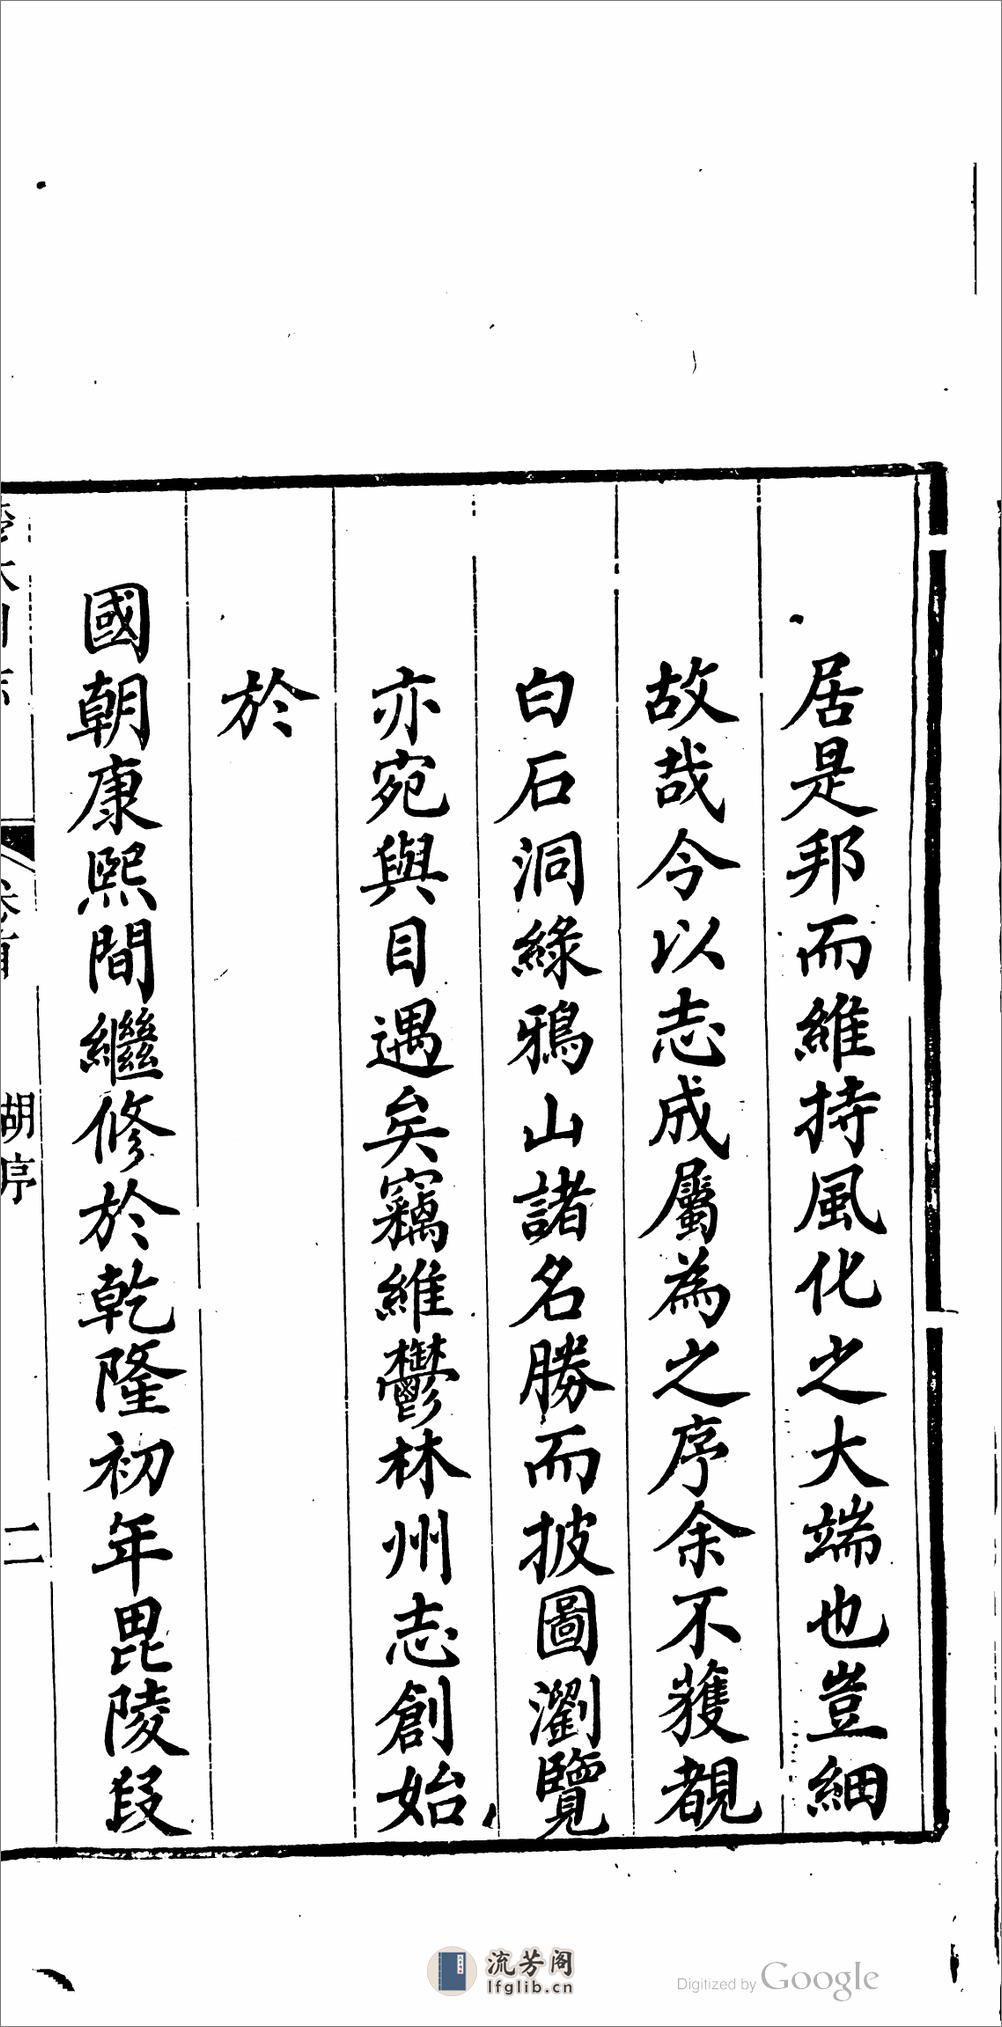 居是邦而維持風化之大端也豈細
故哉今以志成屬為之序余不獲覩
白石洞綠鴉山諸名勝而披圖瀏覽
亦宛與目遇矣竊維鬱林州志創始
於
國朝康熙間繼修於乾隆初年毘陵段
胡序
二
流芳阁
lfglib.cn
Digitized by Google